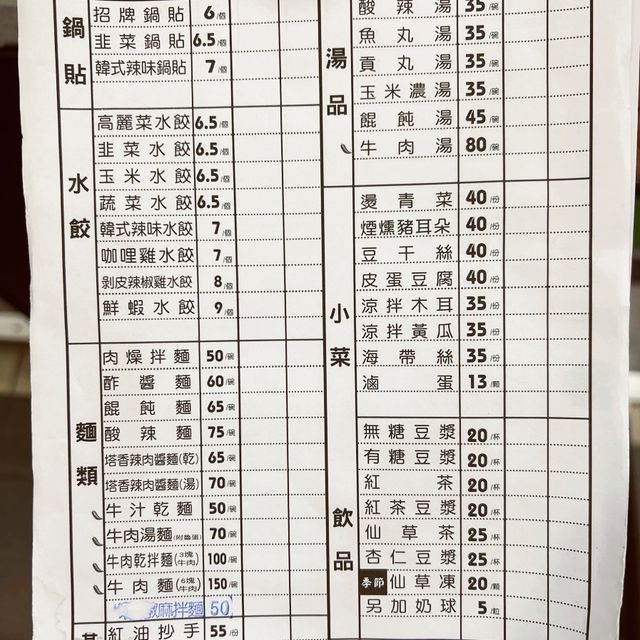 鍋貼
招牌鍋貼 6/個
韭菜鍋貼 6.5/個
韓式辣味鍋貼 7/個
水餃
高麗菜水餃 6.5/個
韭菜水餃 6.5/個
玉米水餃 6.5/個
蔬菜水餃 6.5/個
韓式辣味水餃 7/個
咖哩雞水餃 7/個
剝皮辣椒雞水餃 8/個
鮮蝦水餃 9/個
麵類
肉燥拌麵 50/碗
酢醬麵 60/碗
餛飩麵 65/碗
酸辣麵 75/碗
塔香辣肉醬麵(乾) 65/碗
塔香辣肉醬麵(湯) 70/碗
牛汁乾麵 50/碗
牛肉湯麵(附滷蛋) 70/碗
牛肉乾拌麵(3塊牛肉) 100/碗
牛肉麵(6塊牛肉) 150/碗
麻拌麵 50
紅油抄手 55/份
湯品
酸辣湯 35/碗
魚丸湯 35/碗
貢丸湯 35/碗
玉米濃湯 35/碗
餛飩湯 45/碗
牛肉湯 80/碗
小菜
燙青菜 40/份
煙燻豬耳朵 40/份
豆干絲 40/份
皮蛋豆腐 40/份
涼拌木耳 35/份
涼拌黃瓜 35/份
海帶絲 35/份
滷蛋 13/顆
飲品
無糖豆漿 20/杯
有糖豆漿 20/杯
紅茶 20/杯
紅茶豆漿 20/杯
仙草茶 25/杯
杏仁豆漿 25/杯
季節 仙草凍 20/顆
另加奶球 5/粒